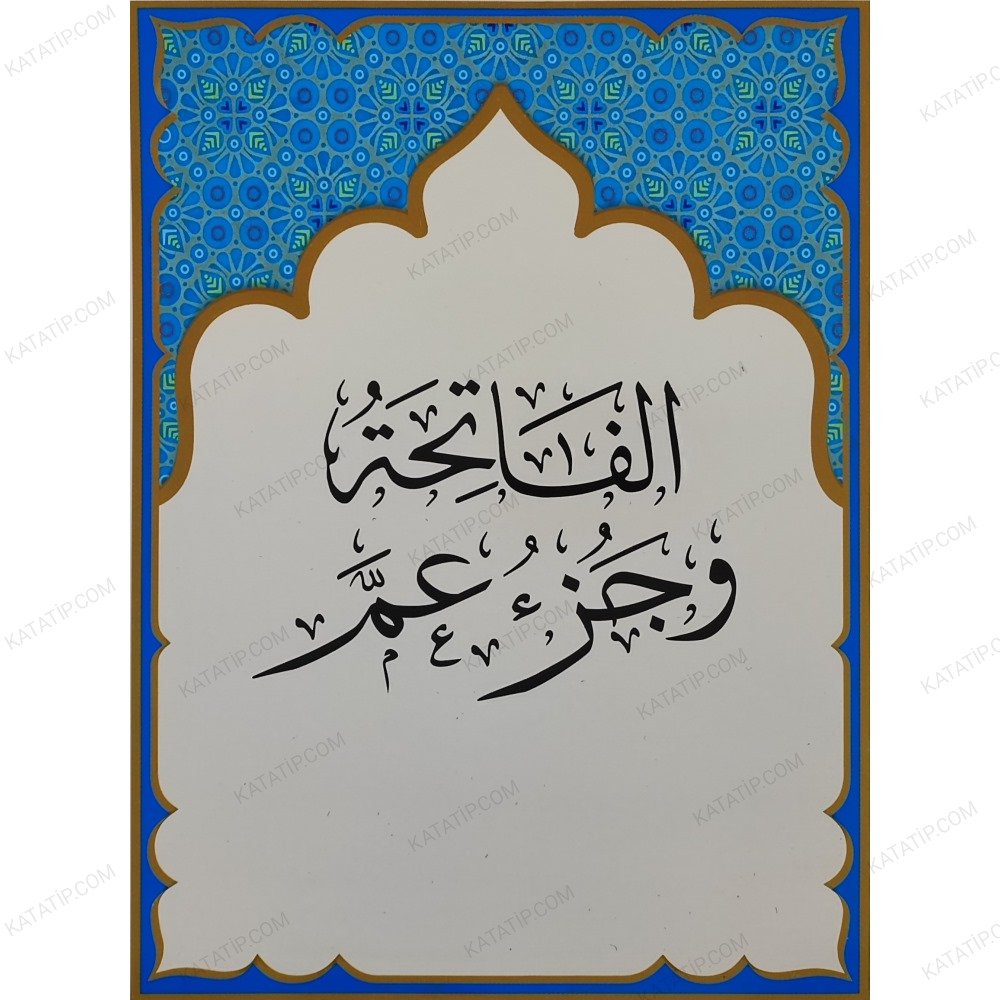 الفَاتِحَةُ
وَجُزْءُ عَمَّ
KATATİP.COM